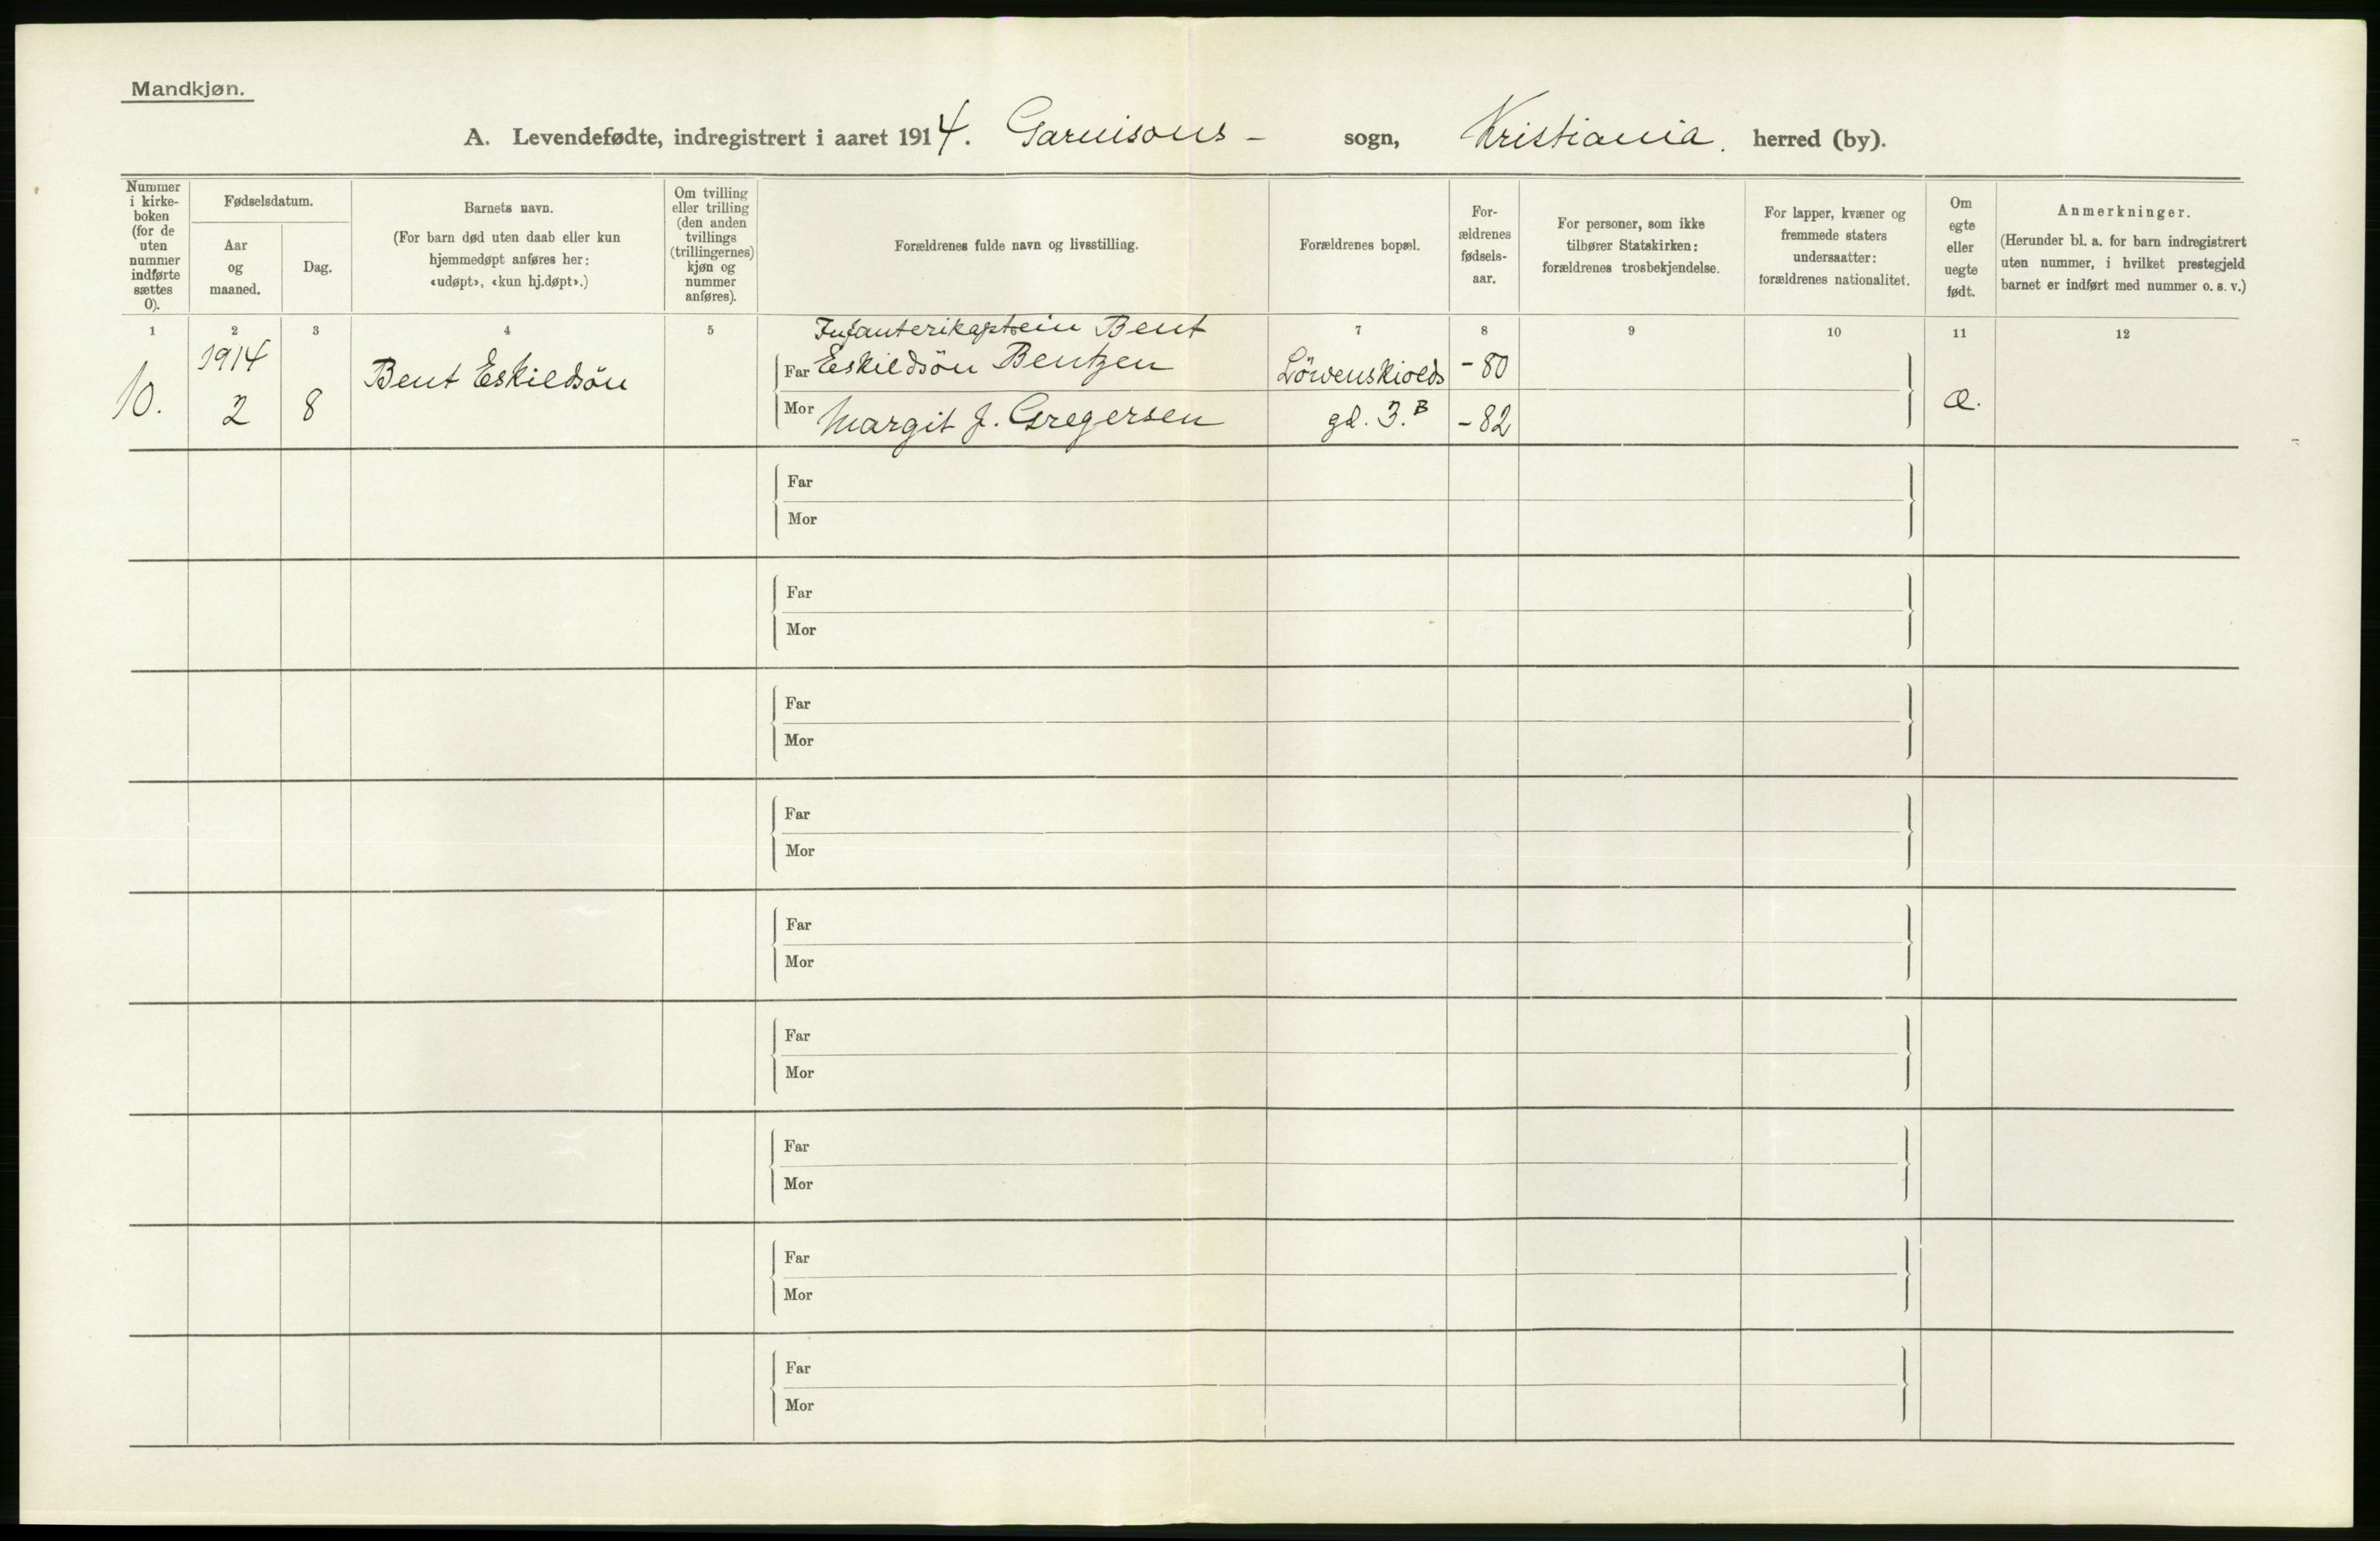 Mandkjøn.
A. Levendefødte, indregistrert i aaret 1914. Garnisons- sogn, Kristiania. herred (by).
Nummer
i kirke-
boken
(for de
uten
nummer
indførte
sættes
0).
Fødselsdatum.
Aar
og
maaned.
Dag.
Barnets navn.
(For barn død uten daab eller kun
hjemmedøpt anføres her:
«udøpt», «kun hj.døpt».)
Om tvilling
eller trilling
(den anden
tvillings
(trillingernes)
kjøn og
nummer
anføres).
Forældrenes fulde navn og livsstilling.
Forældrenes bopæl.
For-
ældrenes
fødsels-
aar.
For personer, som ikke
tilhører Statskirken:
forældrenes trosbekjendelse.
For lapper, kvæner og
fremmede staters
undersaatter:
forældrenes nationalitet.
Om
egte
eller
uegte
født.
Anmerkninger.
(Herunder bl. a. for barn indregistrert
uten nummer, i hvilket prestegjeld
barnet er indført med nummer o. s. v.)
1 2 3 4 5 7 8 9 10 11 12
10.
1914
2
8
Bent Eskildsön
Infanterikaptein Bent
Far Eskildsön Bentzen
Mor Margit J. Gregersen
Lövenskiolds
gd. 3.B
-80
-82
Æ.
Far
Mor
Far
Mor
Far
Mor
Far
Mor
Far
Mor
Far
Mor
Far
Mor
Far
Mor
Far
Mor